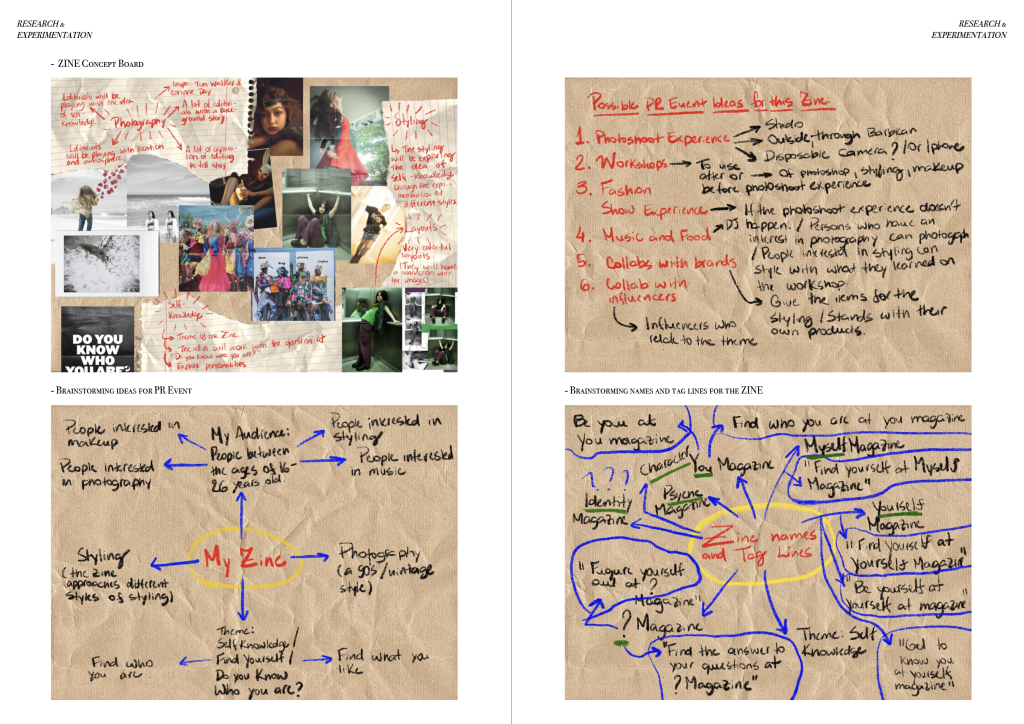 RESEARCH &
EXPERIMENTATION
RESEARCH &
EXPERIMENTATION
- ZINE Concept Board
Editorials will be
playing with the idea
of self-
knowledge.
Photography
Inspo: Tim Walker &
Corinne Day
A lot of editori-
als with a back-
ground story.
Editorials
will be playing with location
and
A lot of explora-
tion of editing
to tell story
Styling
↳ The styling
will be exploring
the idea of
self-knowledge
through the expe-
rimentation of
different styles
Layouts
Very colorful
layouts.
(They will have
a with
the images)
Self-
Knowledge
→ Theme of the Zine.
→ The idea will work with the question of
"Do you know who you are?"
→ Explore personalities
DO YOU
KNOW
WHO
YOU ARE?
Possible PR Event Ideas for this Zine
1. Photoshoot Experience
Studio
Outside, through Barbican
Disposable Camera? / Or Iphone
2. Workshops → To use
after or
before photoshoot experience
→ Of photoshop, styling, makeup
3. Fashion
Show Experience → If the photoshoot experience doesn't
happen. / Persons who have an
interest in photography can photograph
/ People interested in styling can
style with what they learned on
the workshop.
4. Music and Food → DJ
5. Collabs with brands
Give the items for the
styling / Stands with their
own products.
6. Collab with
influencers
Influencers who
relate to the theme
- Brainstorming ideas for PR Event
People interested in
makeup
My Audience:
People between
the ages of 16-
26 years old.
People interested in
styling
People interested
in photography
People interested
in music
Styling
(the zine
approaches different
styles of styling)
My Zine
Photography
(a 90s / vintage
style)
Theme:
Self Knowledge /
Find Yourself /
Do you Know
Who you are?
Find who
you are
Find what you
like
- Brainstorming names and tag lines for the ZINE
Be you at
You magazine
Find who you are at you magazine
Character
You Magazine
Myself Magazine
"Find yourself at Myself
Magazine"
? ? ?
Identity
Magazine
Psyche
Magazine
Yourself
Magazine
Zine names
and Tag Lines
"Find yourself at
yourself Magazin"
"Be yourself at
yourself at magazine"
"Fugure yourself
out at ?
Magazine"
? Magazine
"Find the answer to
your questions at
? Magazine"
Theme: Self
Knowledge
"Get to
know you
at yourself
magazine"